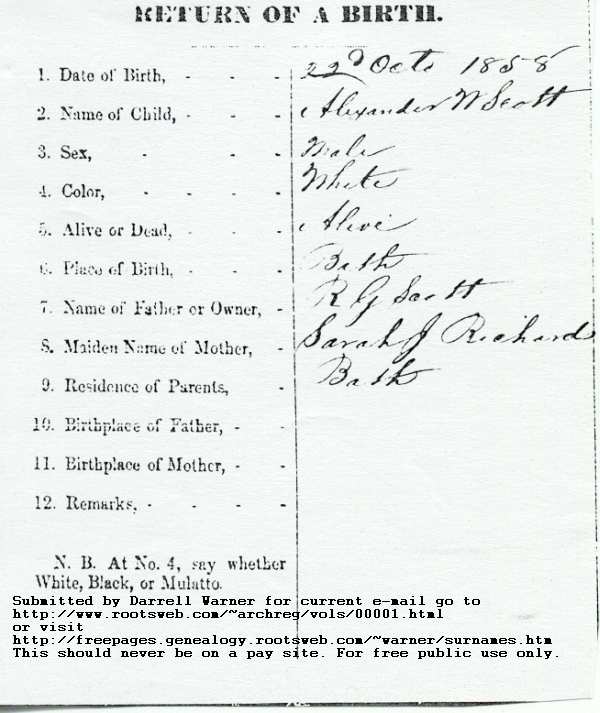 RETURN OF A BIRTH.
1. Date of Birth, - - - 22d Octo 1858
2. Name of Child, - - - Alexander W Scott
3. Sex, - - - Male
4. Color, - - - - White
5. Alive or Dead, - - - Alive
6. Place of Birth, - - - Bath
7. Name of Father or Owner, - R G Scott
8. Maiden Name of Mother, - Sarah J Richards
9. Residence of Parents, - Bath
10. Birthplace of Father, - -
11. Birthplace of Mother, - -
12. Remarks, - - - -
N. B. At No. 4, say whether
White, Black, or Mulatto.
Submitted by Darrell Warner for current e-mail go to
http://www.rootsweb.com/~archreg/vols/00001.html
or visit
http://freepages.genealogy.rootsweb.com/~warner/surnames.htm
This should never be on a pay site. For free public use only.